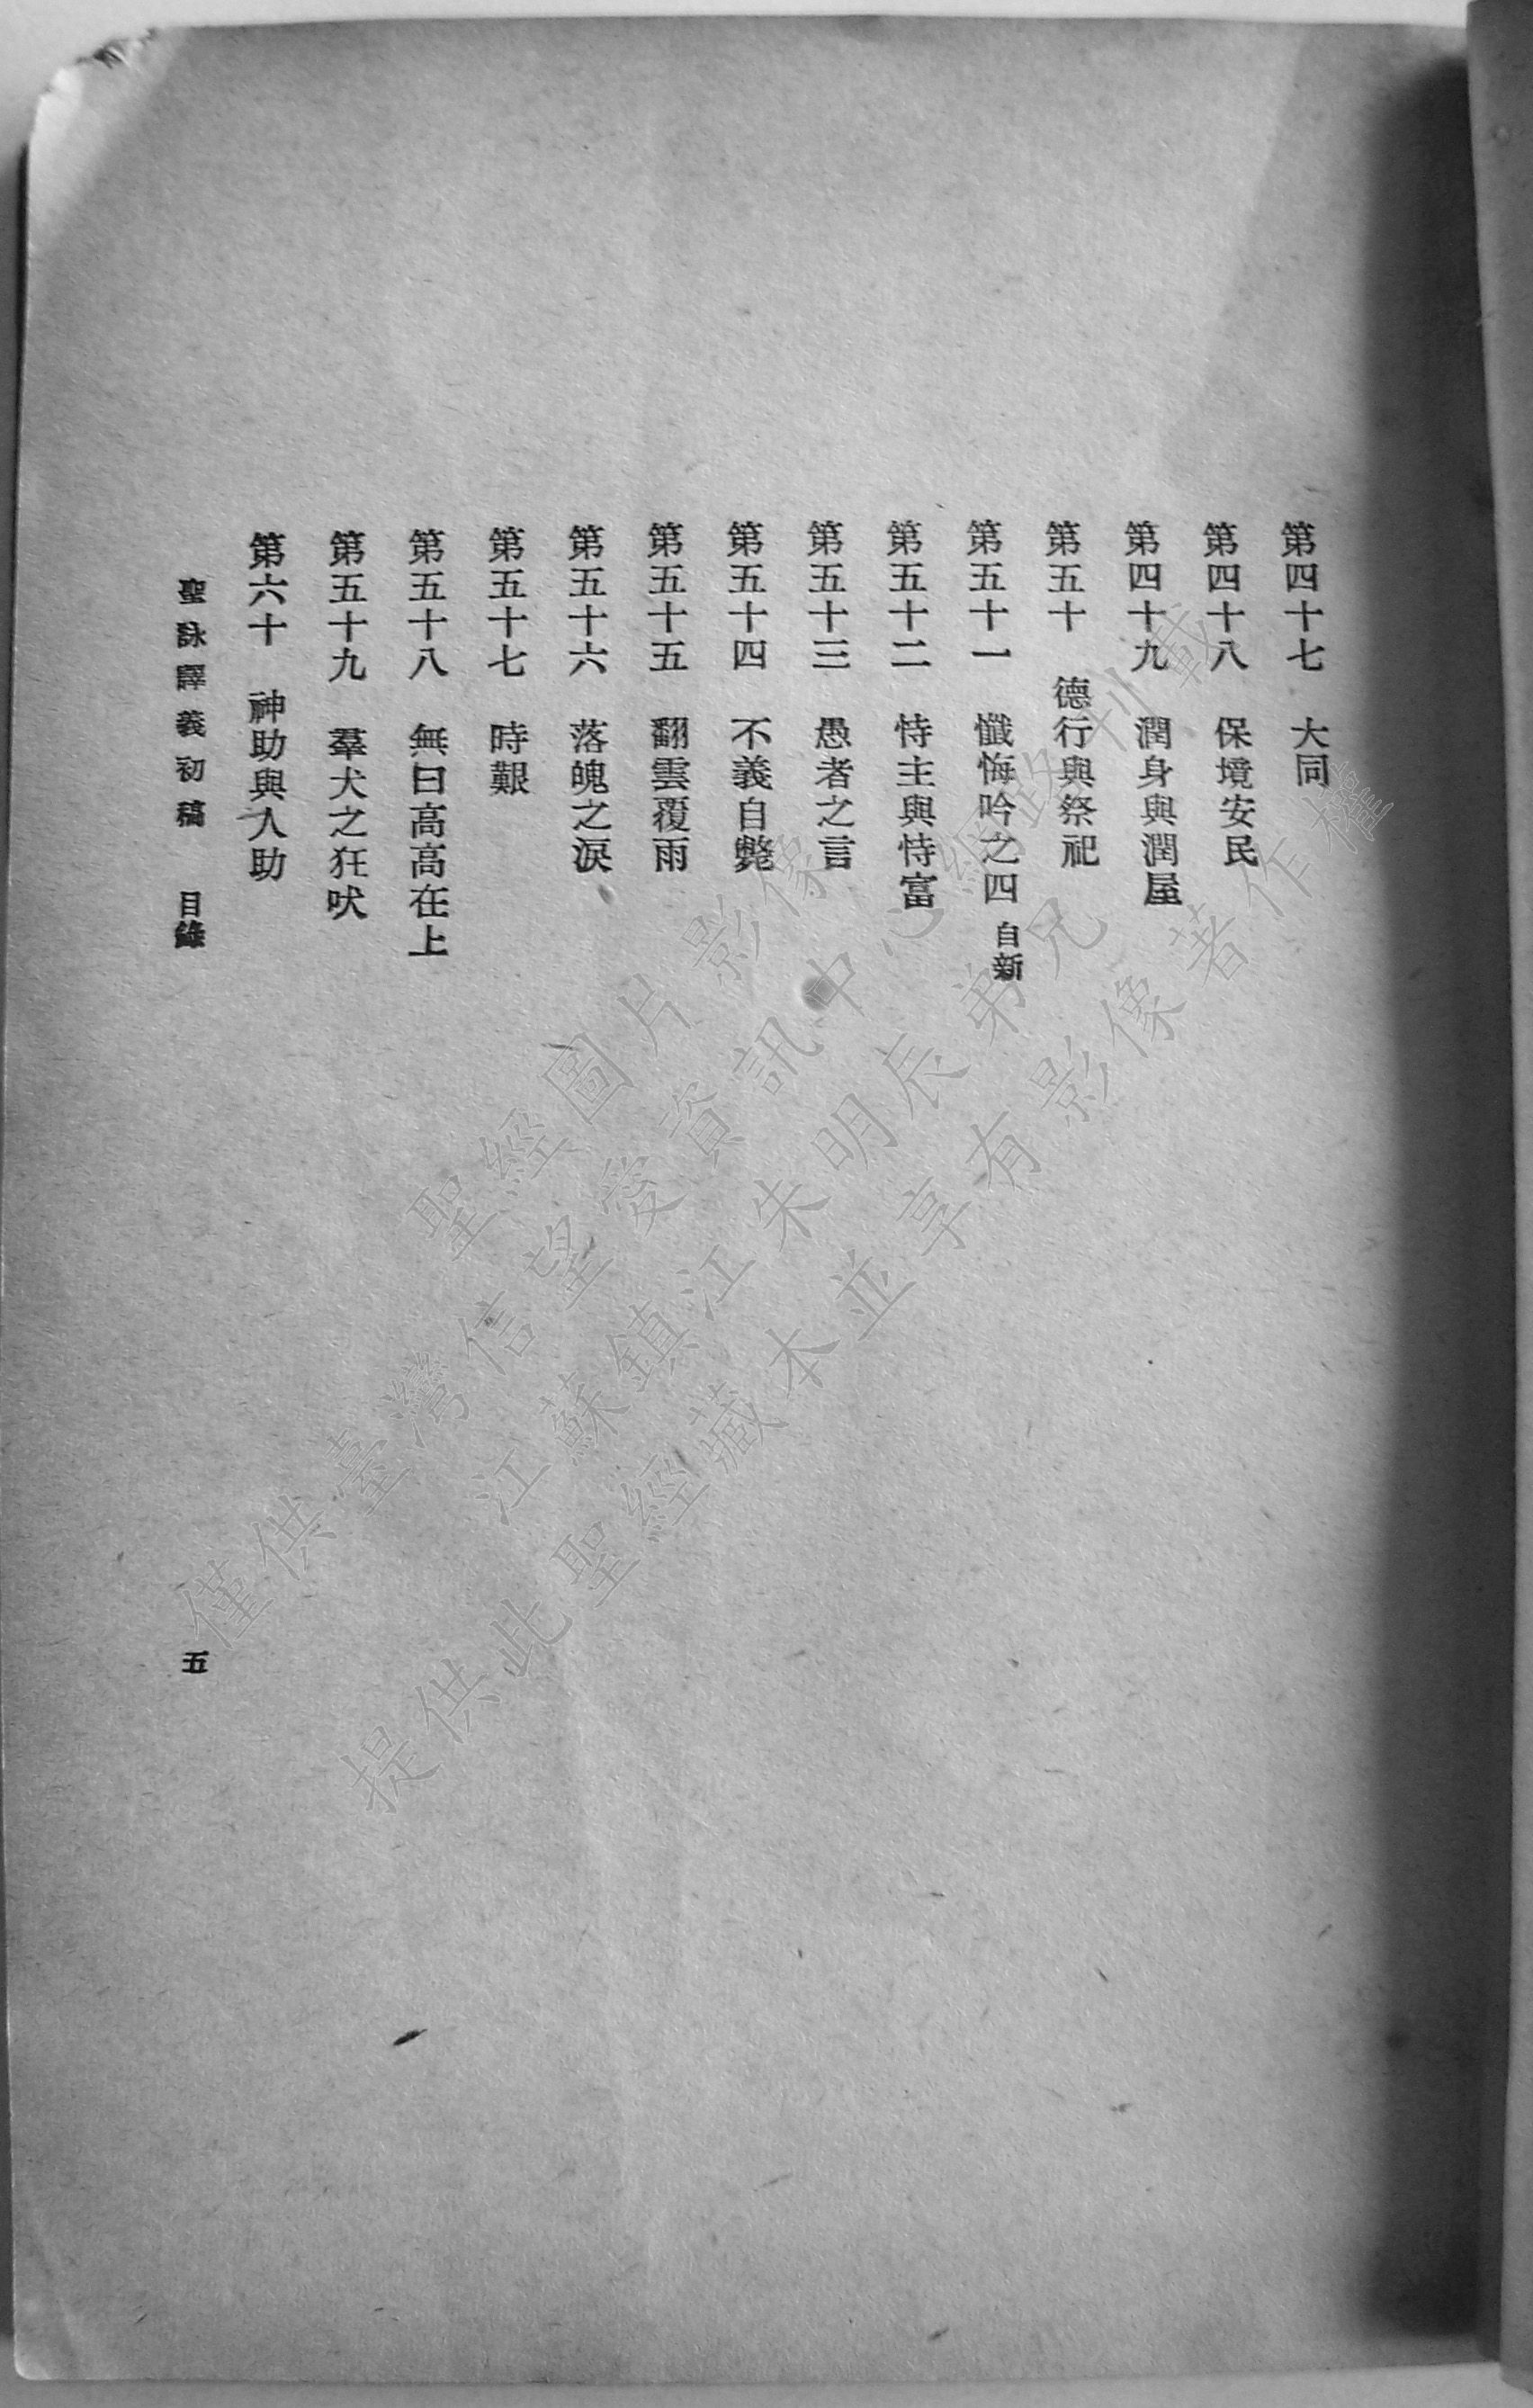 第四十七　大同
第四十八　保境安民
第四十九　潤身與潤屋
第五十　德行與祭祀
第五十一　懺悔吟之四　自新
第五十二　恃主與恃富
第五十三　愚者之言
第五十四　不義自斃
第五十五　翻雲覆雨
第五十六　落魄之淚
第五十七　時艱
第五十八　無曰高高在上
第五十九　羣犬之狂吠
第六十　神助與人助
聖詠譯義初稿　目錄　五
聖經圖片影像
僅供臺灣信望愛資訊中心網路刊載
江蘇鎮江朱明辰弟兄
提供此聖經藏本並享有影像著作權